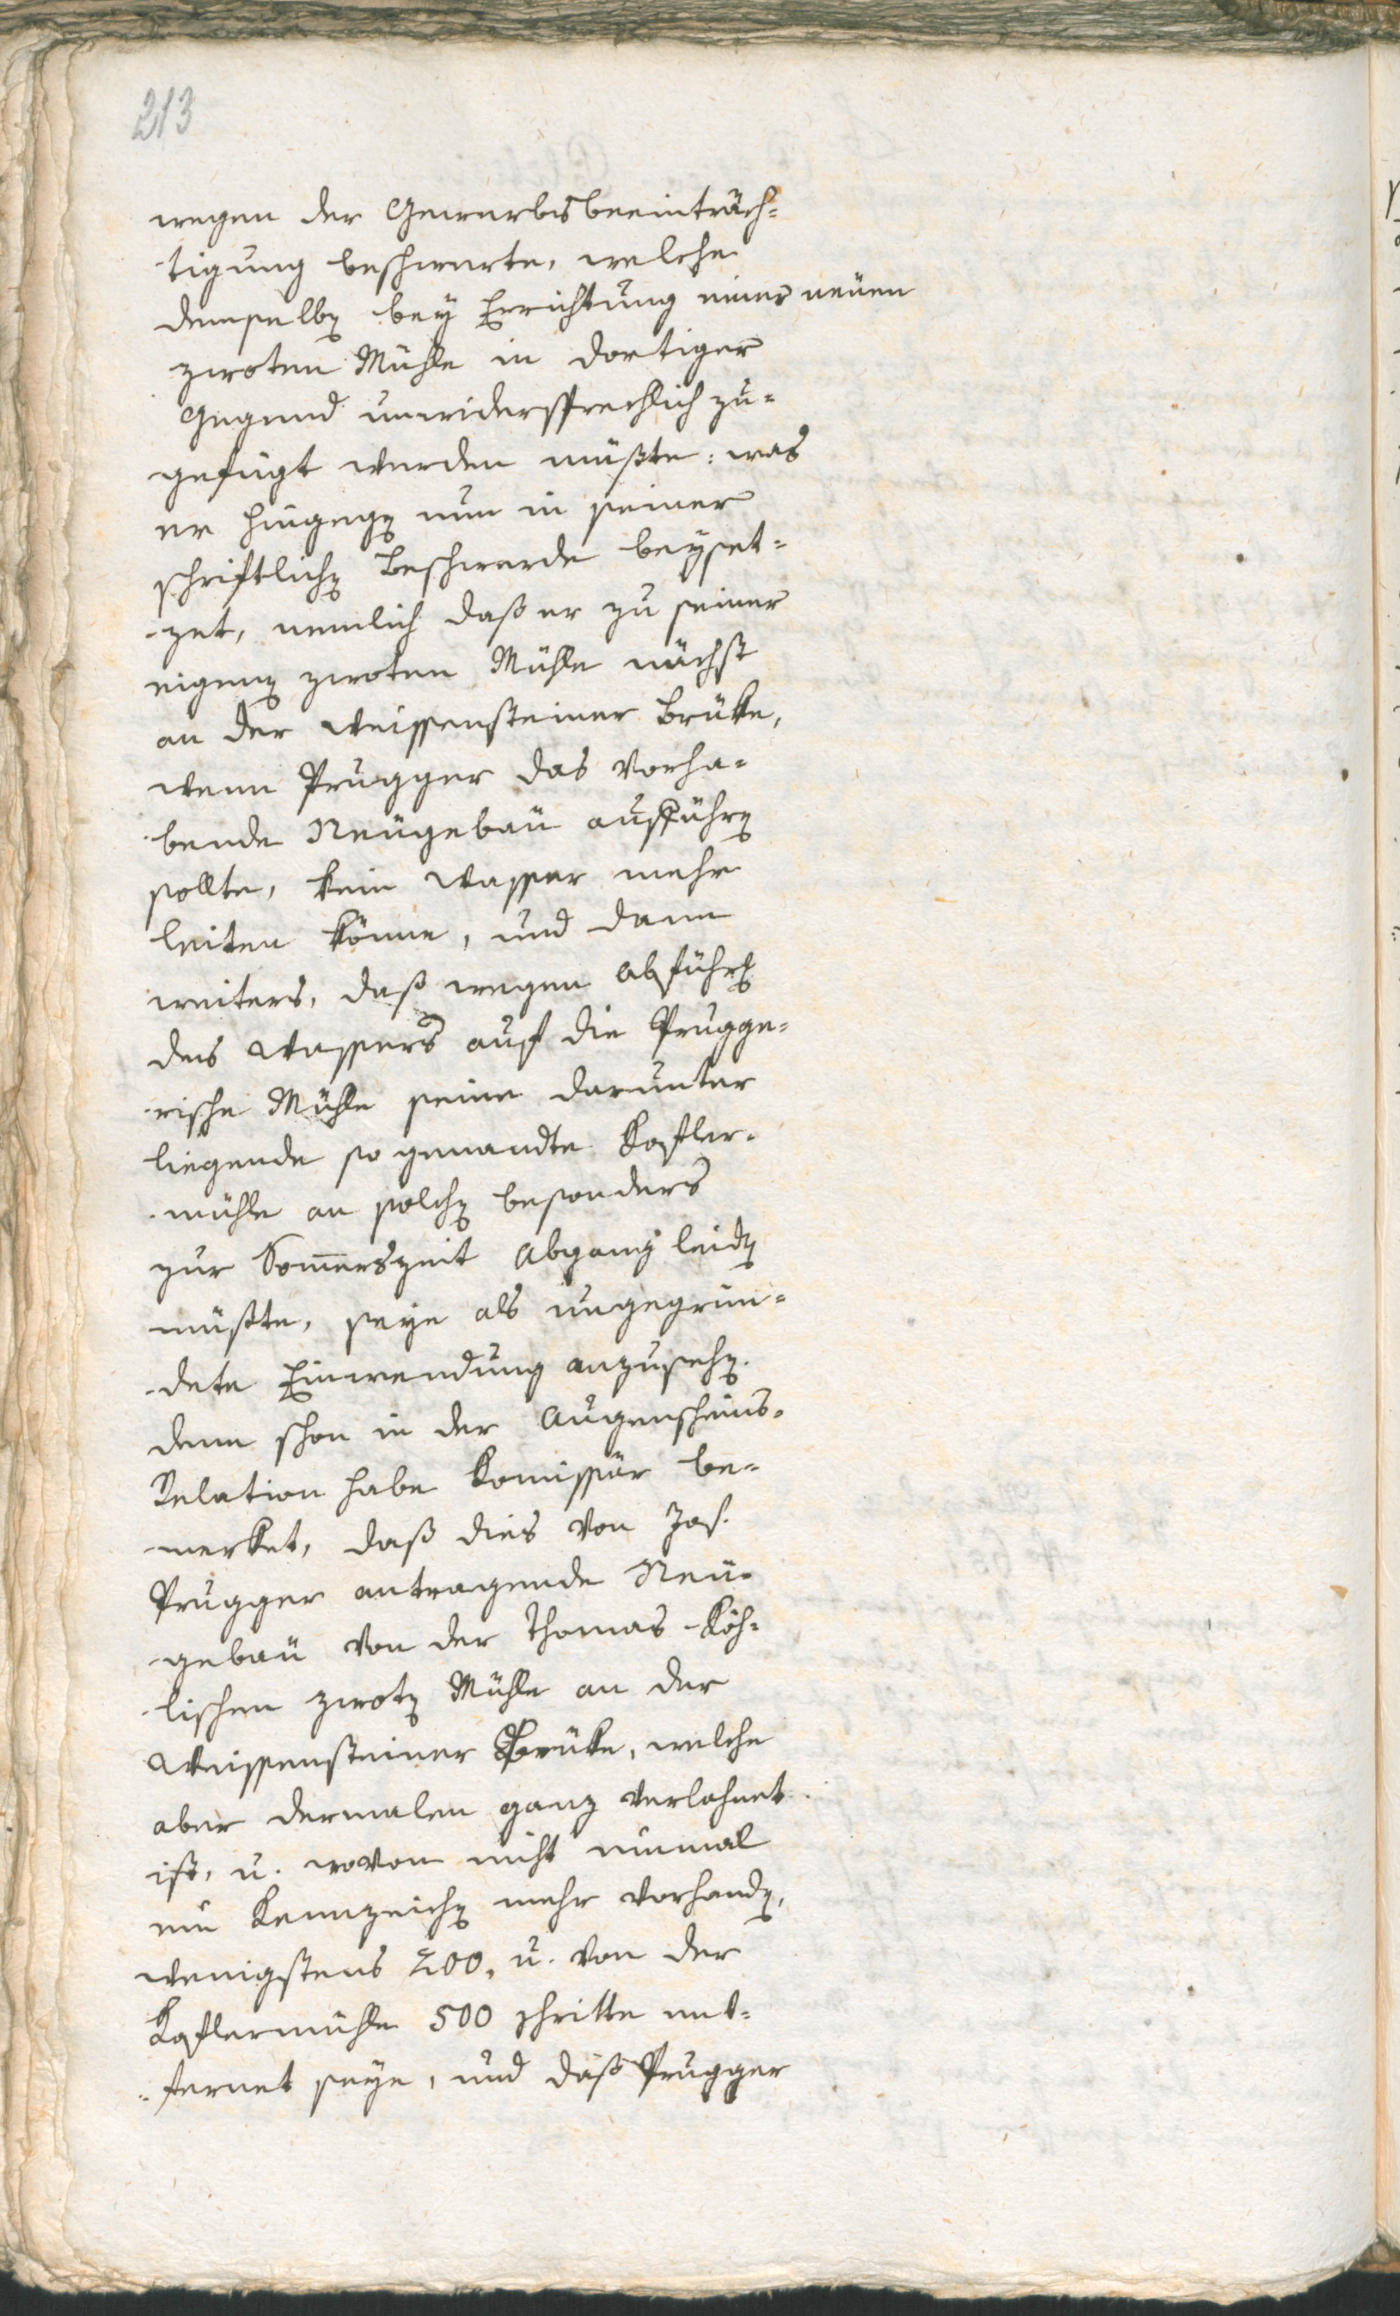 213
wegen der Gewerbsbeeinträch-
tigung beschwerte, welche
demselben bey Errichtung einer neuen
zwoten Mühle in dortiger
Gegend unwidersprechlich zu-
gefügt werden müßte: was
er hingegen nun in seiner
schriftlichen Beschwerde beyset-
-zet, nemlich daß er zu seiner
eigenen zwoten Mühle nächst
an der Weissensteiner Brüke,
wenn Prugger das vorha-
bende Neugebäu ausführen
sollte, kein Wasser mehr
leiten könne, und dann
weiters, daß wegen Abführung
des Wassers auf die Prugge-
-rische Mühle seine darunter
liegende so genandte Kofler-
-mühle an solchen besonders
zur Sommerszeit Abgang leiden
müßte, seye als ungegrün-
-dete Einwendung anzusehen.
denn schon in der Augenscheins-
Relation habe Komissär be-
-merket, daß dies von Jos.
Prugger antragende Neu-
-gebäu von der Thomas-Köh-
-lischen zwoten Mühle an der
Weissensteiner Brüke, welche
aber dermalen ganz verlohnet
ist, u. wovon nicht einmal
ein Kennzeichen mehr vorhanden,
wenigstens 200, u. von der
Koflermühle 500 schritte ent-
-fernet seye, und daß Prugger